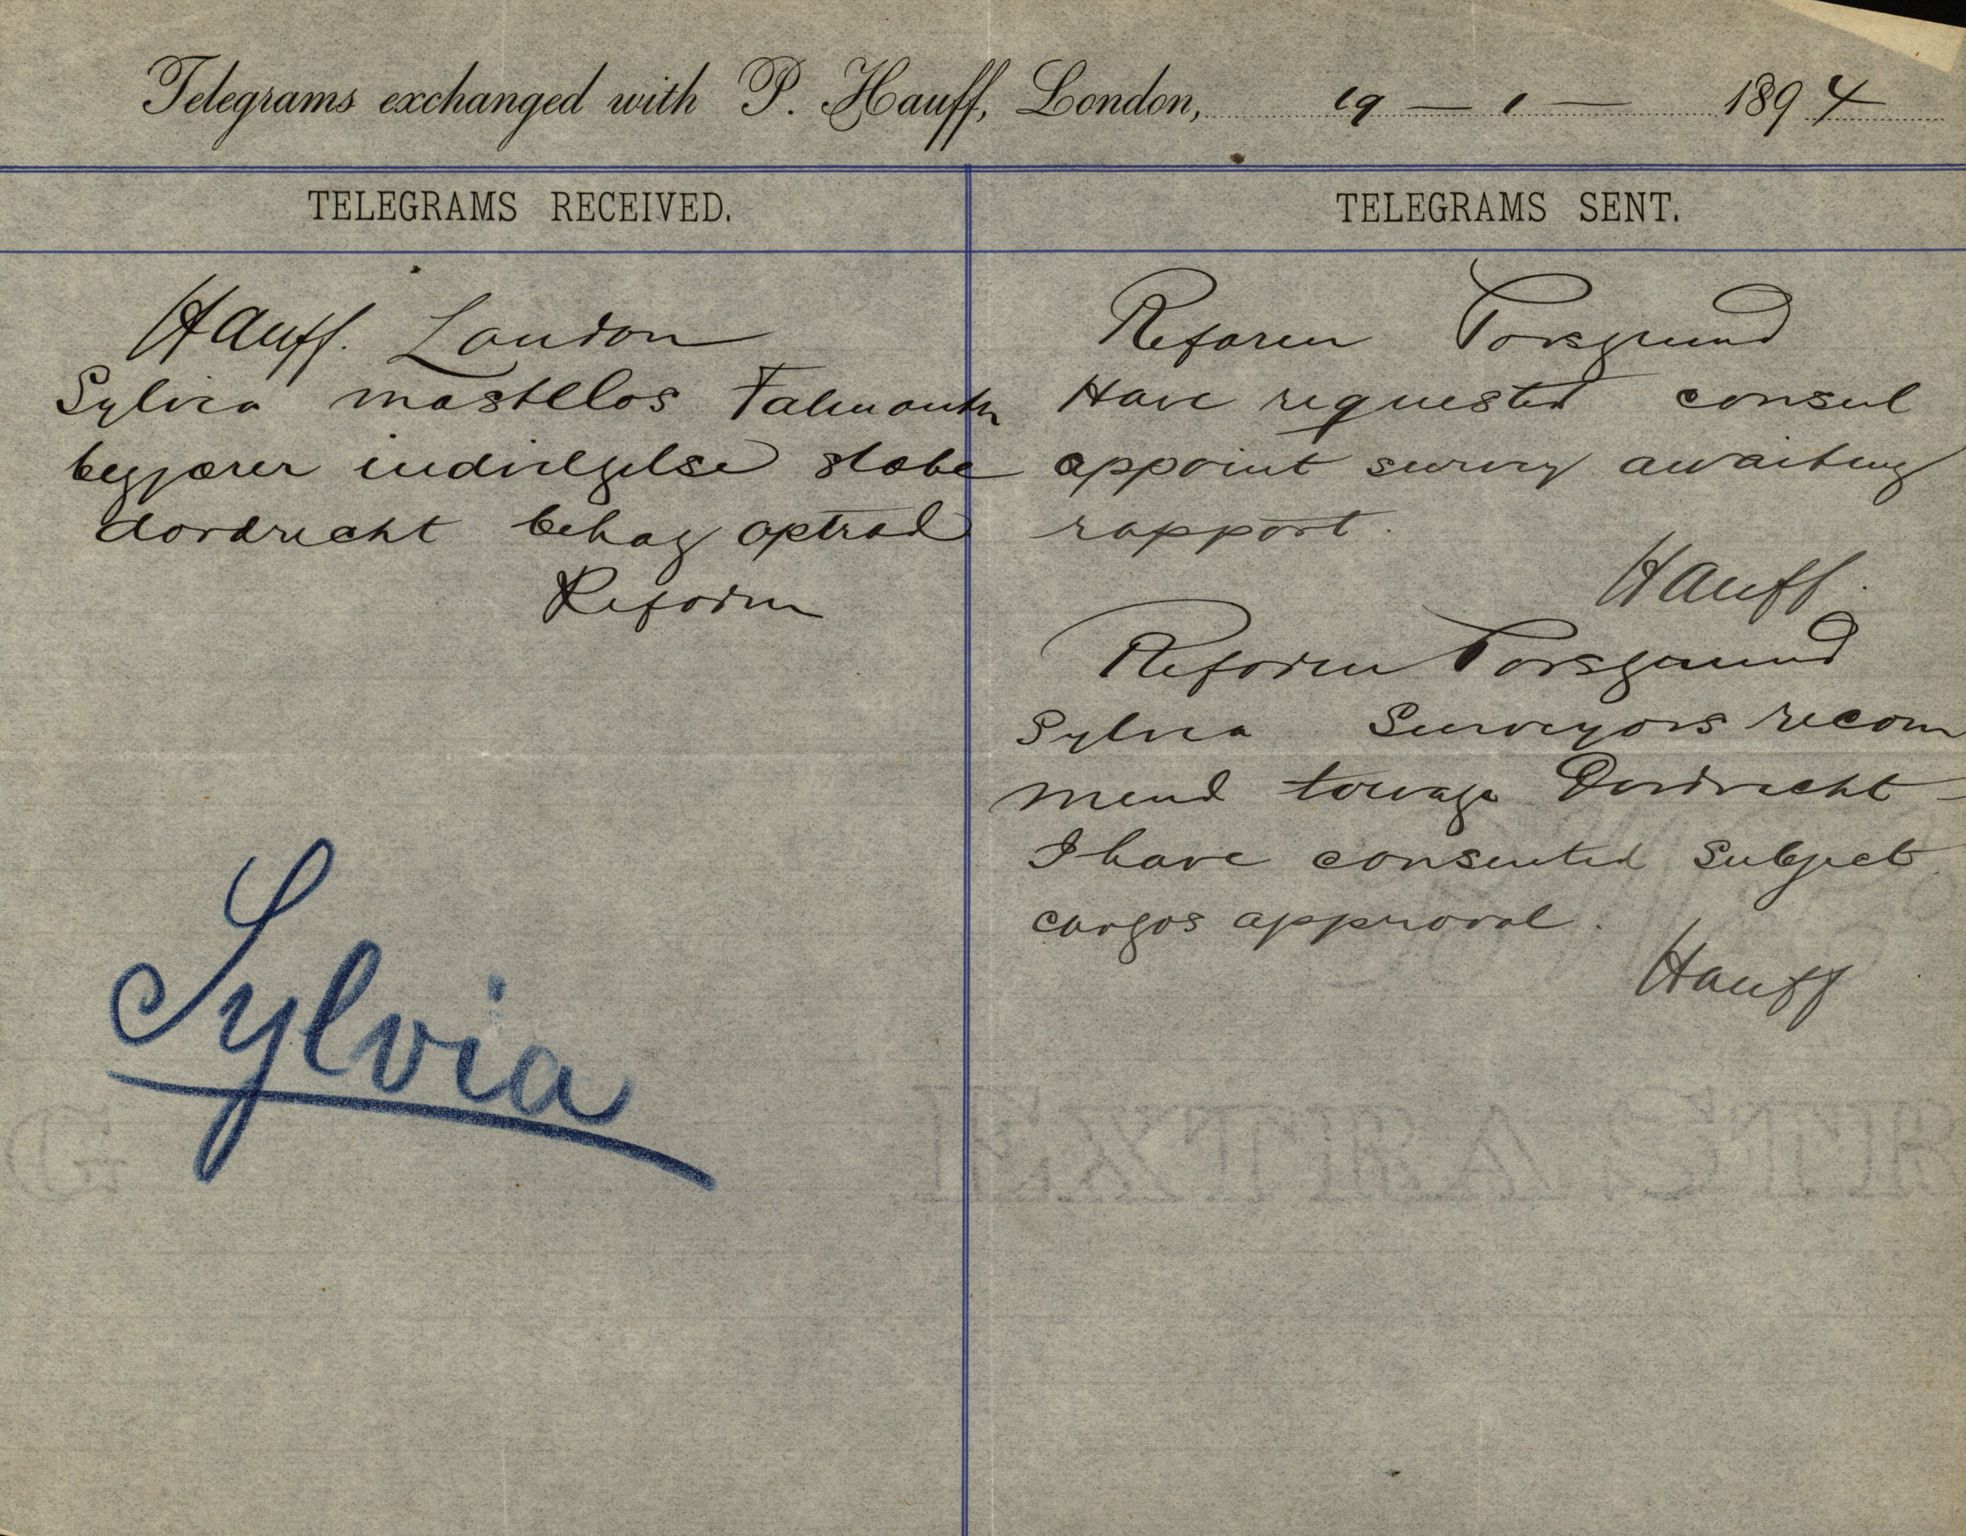 Telegrams exchanged with P. Hauff, London, 19 — 1 — 1894
TELEGRAMS RECEIVED.
Hauff. London
Sylvia mastelos Falmouth
begjærer indvilgelse slæbe
dordrecht behag optræd
Reform
Sylvia
TELEGRAMS SENT.
Reform Porsgrund
Have requested consul
appoint survey awaiting
rapport.
Hauff.
Reform Porsgrund
Sylvia Surveyors recom
mend towage Dordrecht –
I have consented subject
cargos approval.
Hauff